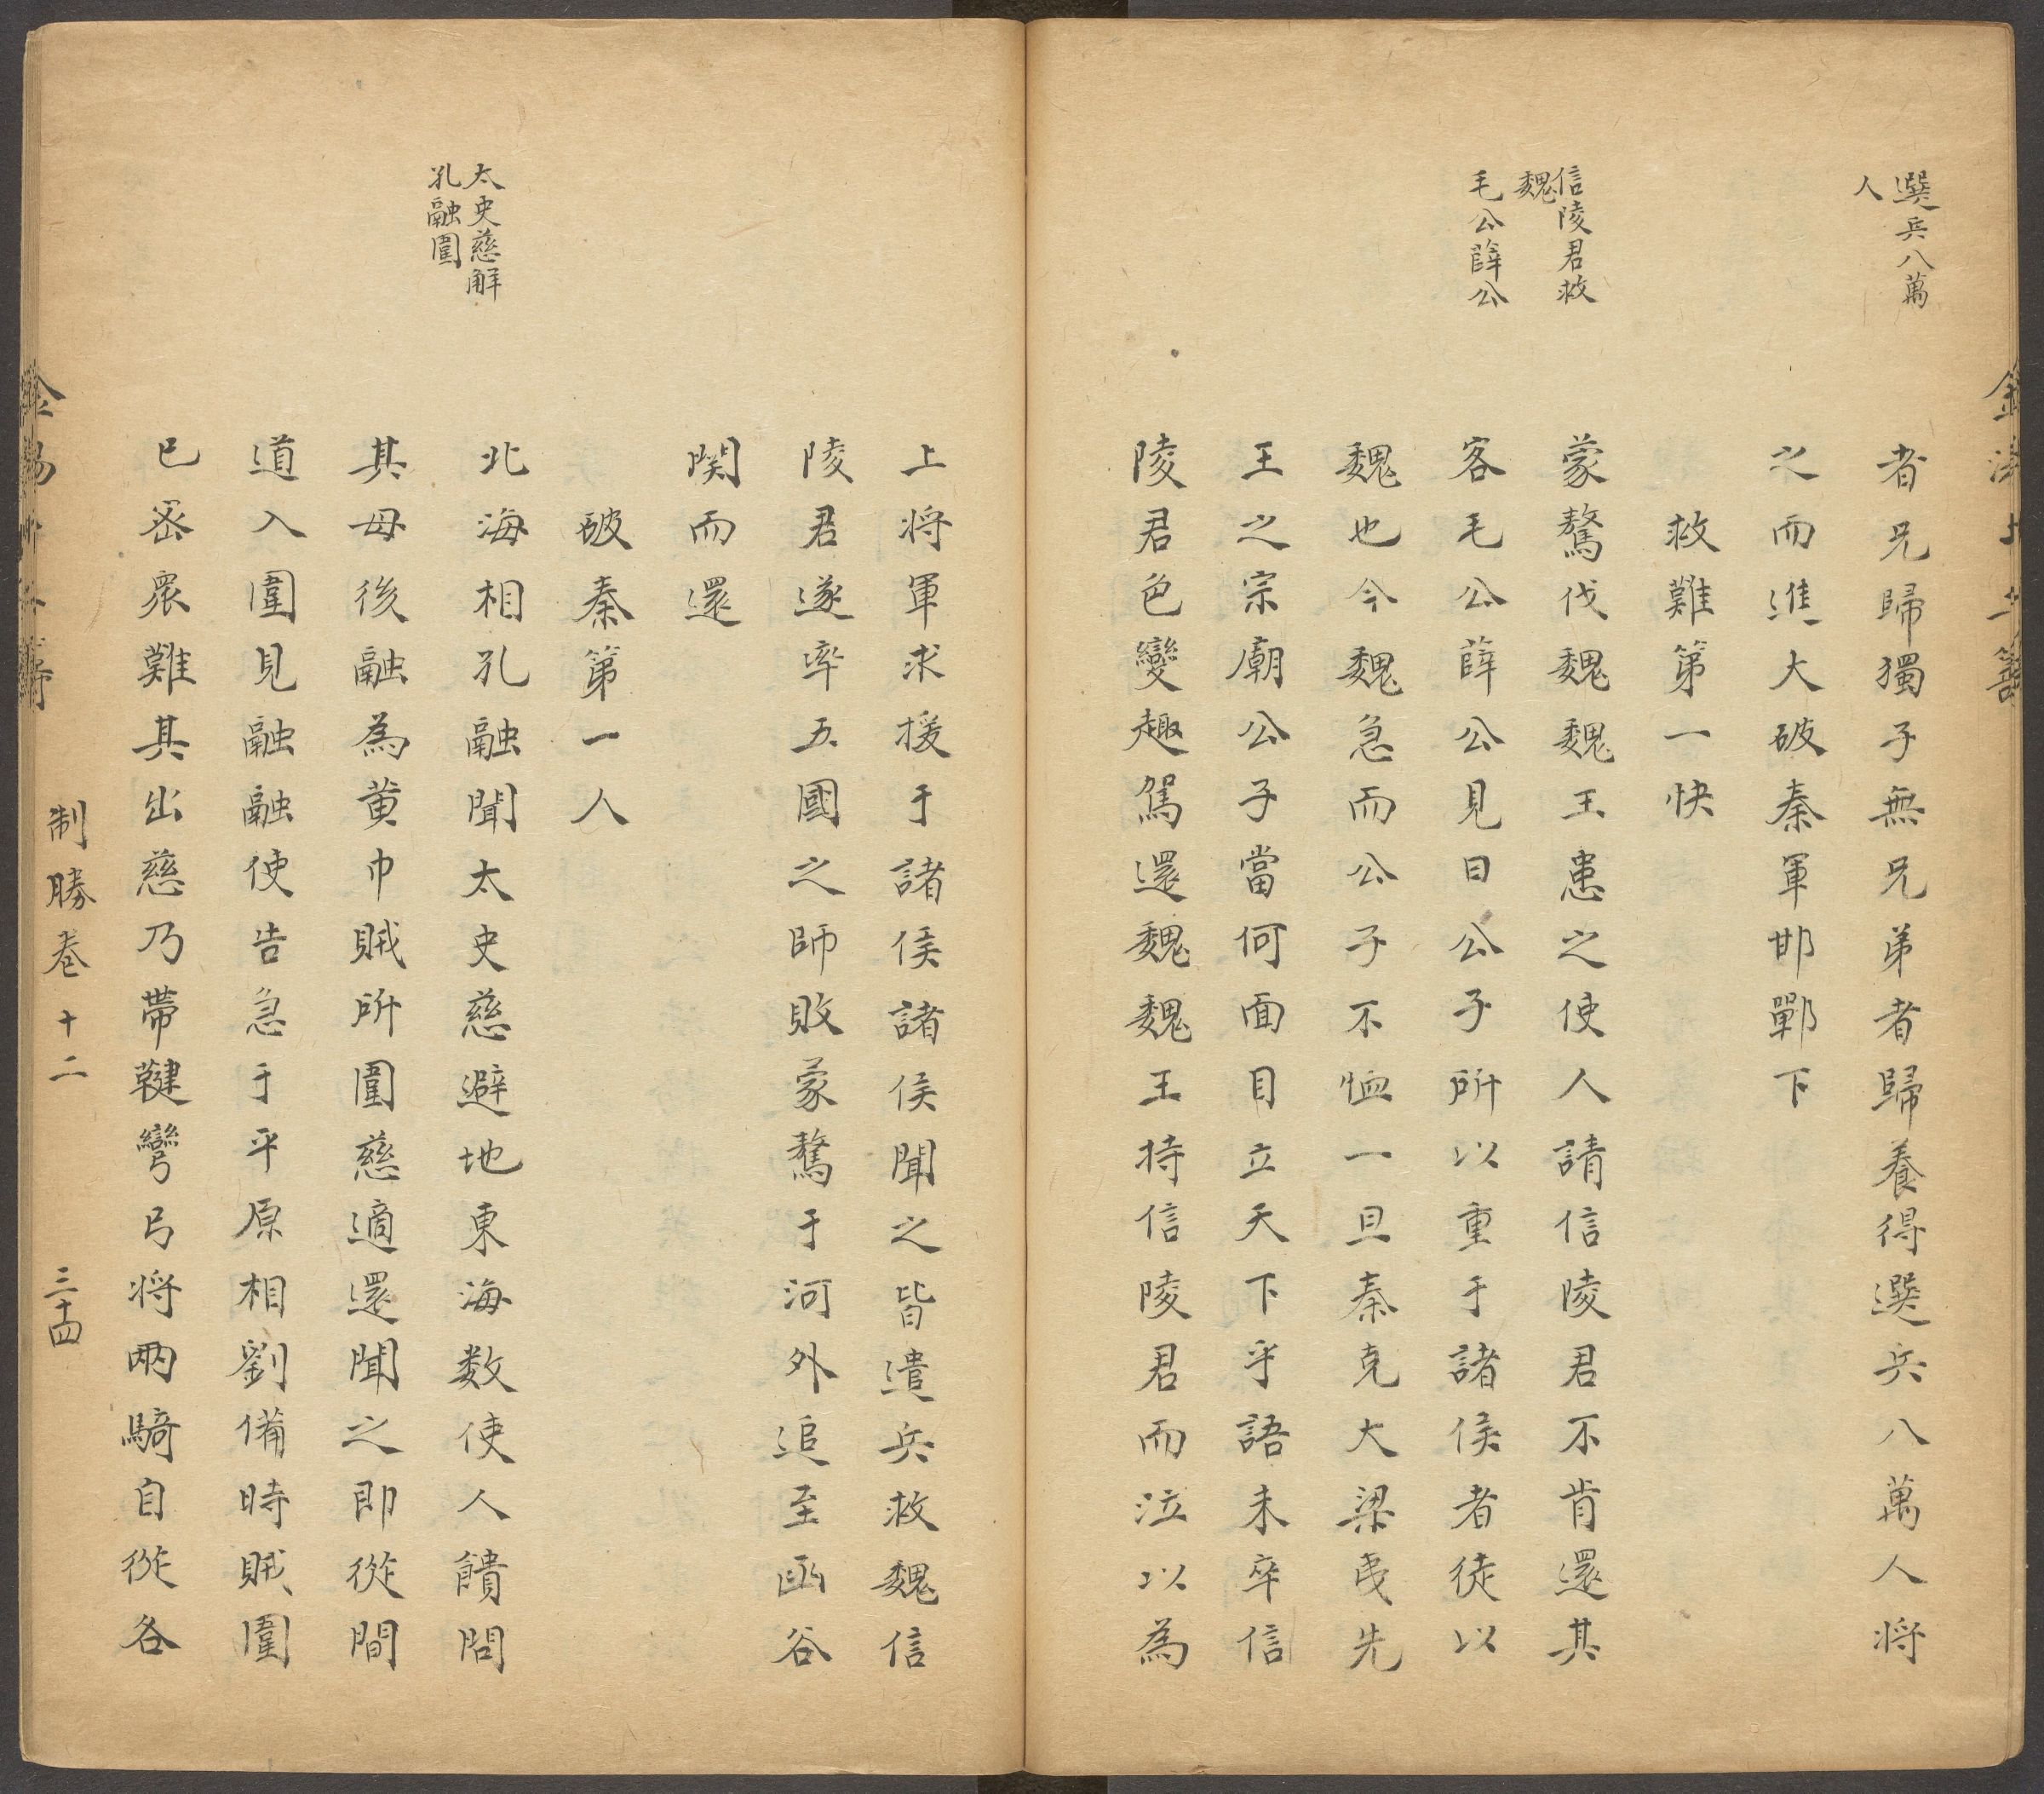 選兵八萬
人
信陵君救
魏
毛公薛公
者兄歸獨子無兄弟者歸養得選兵八萬人将
之而進大破秦軍邯鄲下
救難第一快
蒙驁伐魏魏王患之使人請信陵君不肯還其
客毛公薛公見曰公子所以重于諸侯者徒以
魏也今魏急而公子不恤一旦秦克大梁曵先
王之宗廟公子當何面目立天下乎語未卒信
陵君色變趣駕還魏魏王持信陵君而泣以為
太史慈解
孔融圍
上将軍求援于諸侯諸侯聞之皆遣兵救魏信
陵君遂率五國之師敗蒙驁于河外追至函谷
関而還
破秦第一人
北海相孔融聞太史慈避地東海数使人饋問
其母後融為黄巾賊所圍慈適還聞之即從間
道入圍見融融使告急于平原相劉備時賊圍
已宻衆難其出慈乃帶鞬彎弓将兩騎自從各
制勝卷十二
三十四